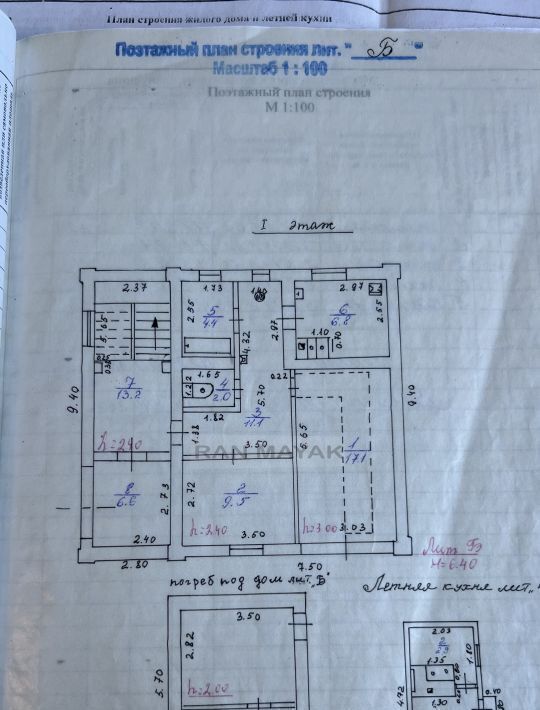 План строения жилого дома и летней кухни
Поэтажный план строения лит. "Б"
Масштаб 1 : 100
Поэтажный план строения
М 1:100
I этаж
2.37
1.73
1.40
2.97
5.65
2.55
5
4.4
4.32
2.97
6
6.8
2.65
1.10
0.70
1.65
4
2.0
1.22
0.22
9.40
7
13.2
1.82
3
11.1
5.70
9.40
h=2.40
1.38
3.50
5.65
1
17.1
RAN MAYAK
8
6.6
2.73
2.72
2
9.5
h=2.40
h=3.00
3.03
2.40
3.50
Лит Б
H=6.40
2.80
7.50
погреб под дом лит. „Б"
Летняя кухня лит. „
3.50
2.82
5.70
h=2.00
2.03
1.80
1.35
4.72
1.30